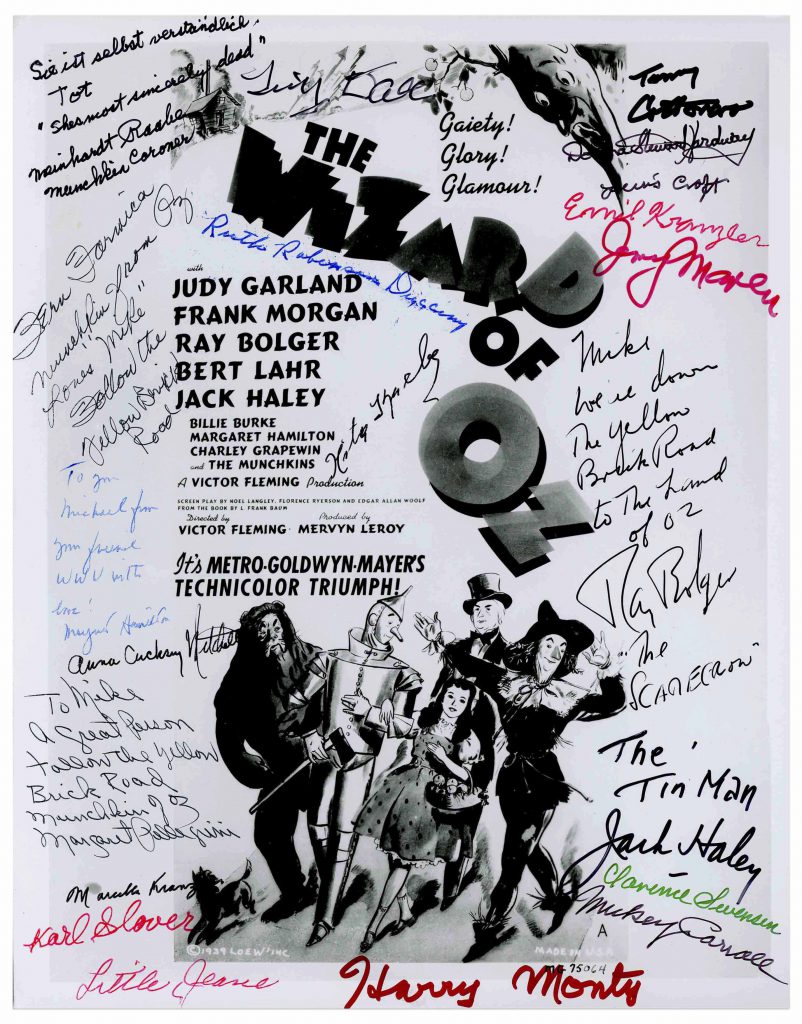 Sie ist selbst verständlich.
Tot
"Shesmost sincerely dead"
Meinhardt Raabe
Munchkin Coroner
Tommy
Cottonaro
Gaiety!
Glory!
Glamour!
Lewis Croft
Emil Kranzler
Jerry Maren
THE
WIZARD
OF
OZ
Ruth Robinson Duccini
Fern Formica
Munchkin from Oz.
Loves "Mike"
Follow the
Yellow Brick
Road
with
JUDY GARLAND
FRANK MORGAN
RAY BOLGER
BERT LAHR
JACK HALEY
BILLIE BURKE
MARGARET HAMILTON
CHARLEY GRAPEWIN
and THE MUNCHKINS
A VICTOR FLEMING Production
SCREEN PLAY BY NOEL LANGLEY, FLORENCE RYERSON AND EDGAR ALLAN WOOLF
FROM THE BOOK BY L. FRANK BAUM
Directed by
VICTOR FLEMING
Produced by
MERVYN LEROY
It's METRO-GOLDWYN-MAYER'S
TECHNICOLOR TRIUMPH!
Mike
We're down
The Yellow
Brick Road
to The Land
of OZ
Ray Bolger
"The
SCARECROW"
To you
Michael from
your friend
WWW with
love!
Margaret Hamilton
Anna Cucksey Mitchell
To Mike
A Great Person
Follow the Yellow
Brick Road
Munchkin of Oz
Margaret Pellegrini
The
Tin Man
Jack Haley
Clarence Swensen
Mickey Carroll
Karl Slover
Little Jeane
Harry Monty
©1939 LOEW'S INC.
A
MADE IN U.S.A.
75064